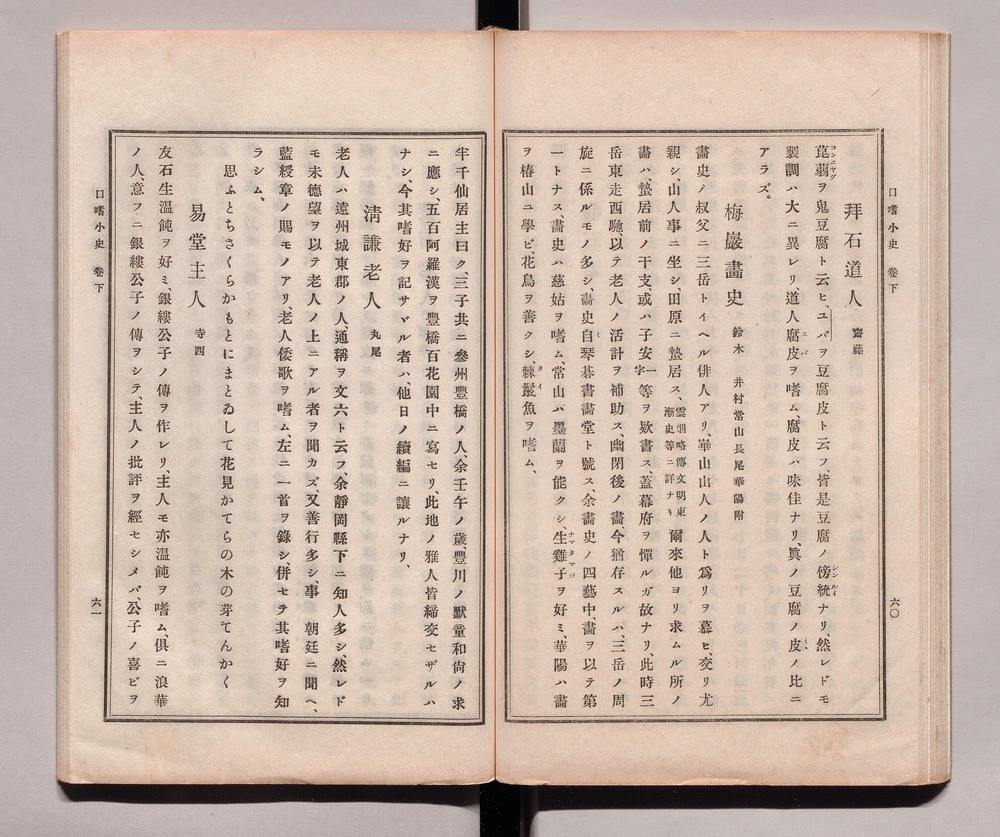 口嗜小史　卷下
六〇
拜石道人　齋藤
菎蒻ヲ鬼豆腐ト云ヒ、ユバヲ豆腐皮ト云フ、皆是豆腐ノ傍統ナリ、然レドモ
製調ハ大ニ異レリ、道人腐皮ヲ嗜ム、腐皮ハ味佳ナリ、眞ノ豆腐ノ皮ノ比ニ
アラズ。
梅巖畵史　鈴木　井村常山長尾華陽附
畵史ノ叔父ニ三岳トイヘル俳人アリ、崋山山人ノ人ト爲リヲ慕ヒ、交リ尤
親シ、山人事ニ坐シ、田原ニ蟄居ス、雲烟略傳文明東漸史等ニ詳ナリ爾來他ヨリ求ムル所ノ
畵ハ、蟄居前ノ干支、或ハ子安一字等ヲ欵書ス、蓋幕府ヲ憚ルガ故ナリ、此時三
岳東走西馳以テ老人ノ活計ヲ補助ス、幽閉後ノ畵、今猶存スルハ、三岳ノ周
旋ニ係ルモノ多シ、畵史自琴碁書畵堂ト號ス、余畵史ノ四藝中、畵ヲ以テ第
一トナス、畵史ハ慈姑ヲ嗜ム、常山ハ墨蘭ヲ能クシ、生雞子ヲ好ミ、華陽ハ畵
ヲ椿山ニ學ビ、花鳥ヲ善クシ、棘鬣魚ヲ嗜ム、
半千仙居主曰ク、三子共ニ參州豐橋ノ人、余壬午ノ歲、豐川ノ默童和尙ノ求
ニ應シ、五百阿羅漢ヲ豐橋百花園中ニ寫セリ、此地ノ雅人皆締交セザルハ
ナシ、今其嗜好ヲ記サヾル者ハ、他日ノ續編ニ讓ルナリ、
淸謙老人　丸尾
老人ハ遠州城東郡ノ人、通稱ヲ文六ト云フ、余靜岡縣下ニ知人多シ、然レド
モ未德望ヲ以テ老人ノ上ニアル者ヲ聞カズ、又善行多シ、事　朝廷ニ聞ヘ、
藍綬章ノ賜モノアリ、老人倭歌ヲ嗜ム、左ニ一首ヲ錄シ、併セテ其嗜好ヲ知
ラシム、
思ふとちさくらかもとにまとゐして花見かてらの木の芽てんかく
易堂主人　寺西
友石生溫飩ヲ好ミ、銀縷公子ノ傳ヲ作レリ、主人モ亦溫飩ヲ嗜ム、俱ニ浪華
ノ人、意フニ銀縷公子ノ傳ヲシテ、主人ノ批評ヲ經セシメバ、公子ノ喜ビヲ
口嗜小史　卷下
六一